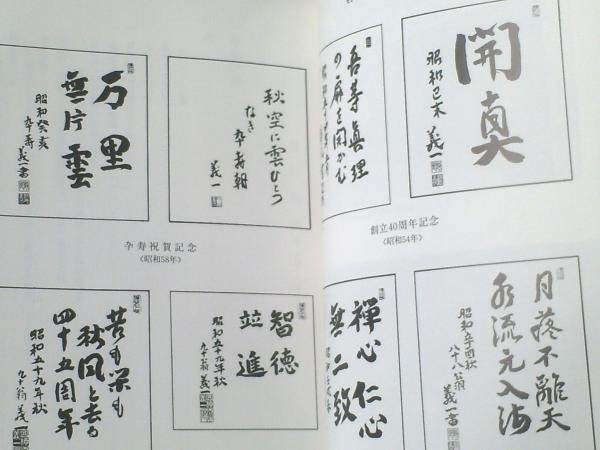 開真
昭和己未 義一
吾等真理
の扉を開かむ
創立40周年記念
〈昭和54年〉
秋空に雲ひとつ
なき 卒寿朝
義一
万里
無片雲
昭和癸亥
卒寿 義一書
卒寿祝賀記念
〈昭和58年〉
月落不離天
水流元入海
昭和辛酉秋
八十八翁
義一書
禅心仁心
無二致
智徳
並進
昭和五十九年秋
九十翁 義一
苦も楽も
秋風と去る
四十五周年
昭和五十九年秋
九十翁 義一